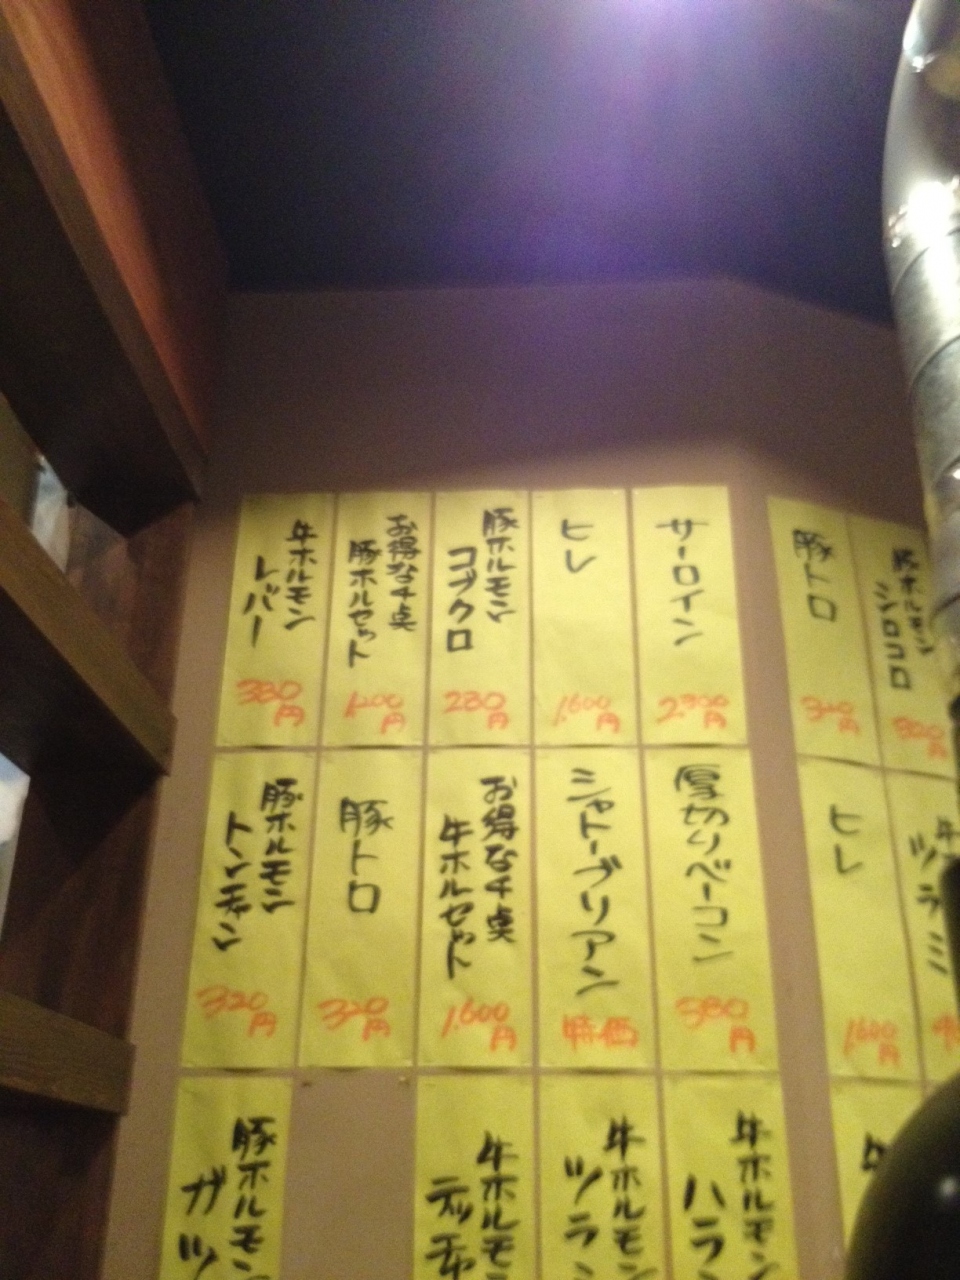 サーロイン
2300円
ヒレ
1,600円
豚ホルモン
コブクロ
280円
お得な4点
豚ホルセット
1,200円
牛ホルモン
レバー
380円
厚切りベーコン
380円
シャトーブリアン
特価
お得な4点
牛ホルセット
1,600円
豚トロ
320円
豚ホルモン
トンチャン
320円
牛ホルモン
ハラ
牛ホルモン
ツラ
牛ホルモン
テッチャ
豚ホルモン
ガツ
豚ホルモン
シロコロ
豚トロ
320円
ツラミ
ヒレ
1600円